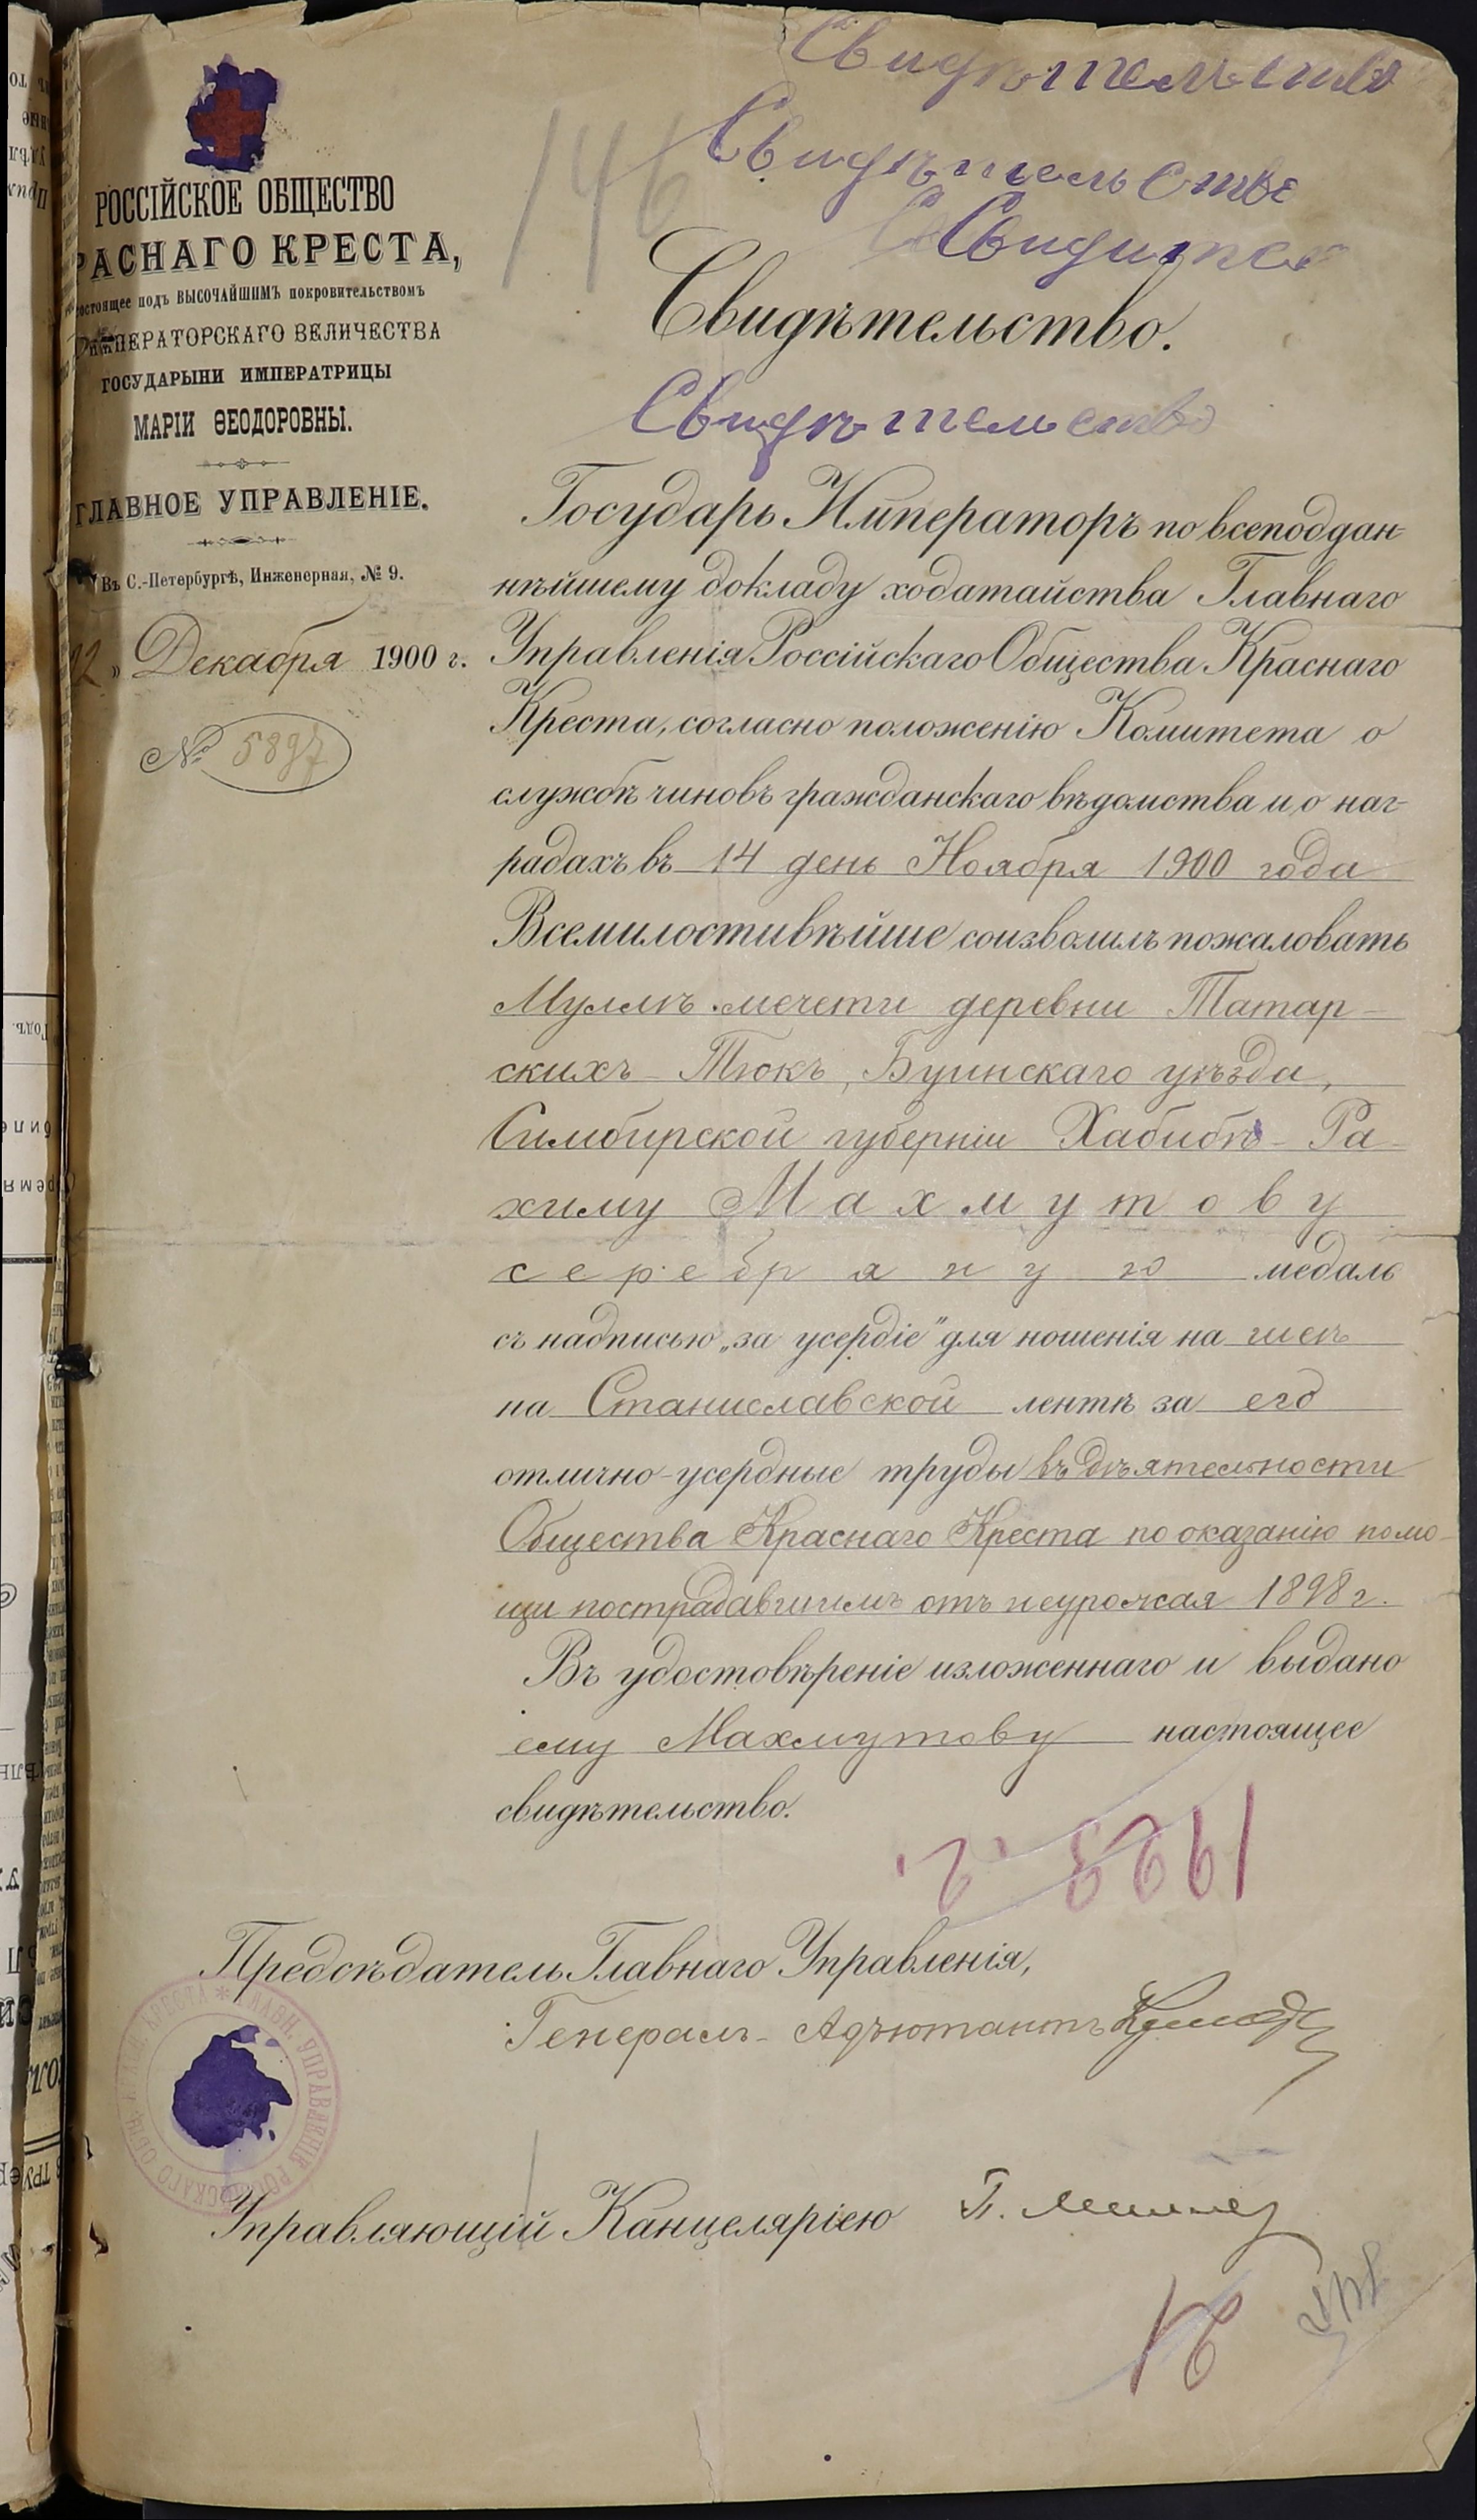 Свидѣтельство
Свидѣтельство
146
Свидите
РОССІЙСКОЕ ОБЩЕСТВО
РАСНАГО КРЕСТА,
состоящее подъ ВЫСОЧАЙШИМЪ покровительствомъ
ИМПЕРАТОРСКАГО ВЕЛИЧЕСТВА
ГОСУДАРЫНИ ИМПЕРАТРИЦЫ
МАРІИ ѲЕОДОРОВНЫ.
ГЛАВНОЕ УПРАВЛЕНІЕ.
Въ С.-Петербургѣ, Инженерная, № 9.
12 „ Декабря 1900 г.
№ 5897
Свидѣтельство.
Свидѣтельство
Государь Императоръ по всеподдан-
нѣйшему докладу ходатайства Главнаго
Управленія Россійскаго Общества Краснаго
Креста, согласно положенію Комитета о
службѣ чиновъ гражданскаго вѣдомства и о наг-
радахъ въ 14 день Ноября 1900 года
Всемилостивѣйше соизволилъ пожаловать
Муллѣ мечети деревни Татар-
скихъ Тюкъ, Буинскаго уѣзда,
Симбирской губерніи Хабибѣ-Ра-
химу Махмутову
серебряную медаль
съ надписью „за усердіе" для ношенія на шеѣ
на Станиславской лентѣ за его
отлично-усердные труды въ дѣятельности
Общества Краснаго Креста по оказанію помо-
щи пострадавшимъ отъ неурожая 1898 г.
Въ удостовѣреніе изложеннаго и выдано
ему Махмутову настоящее
свидѣтельство.
Предсѣдатель Главнаго Управленія,
Генералъ-Адъютантъ
ГЛАВН. УПРАВЛЕНІЕ РОССІЙСКАГО ОБЩ. КРАСН. КРЕСТА
Управляющій Канцеляріею